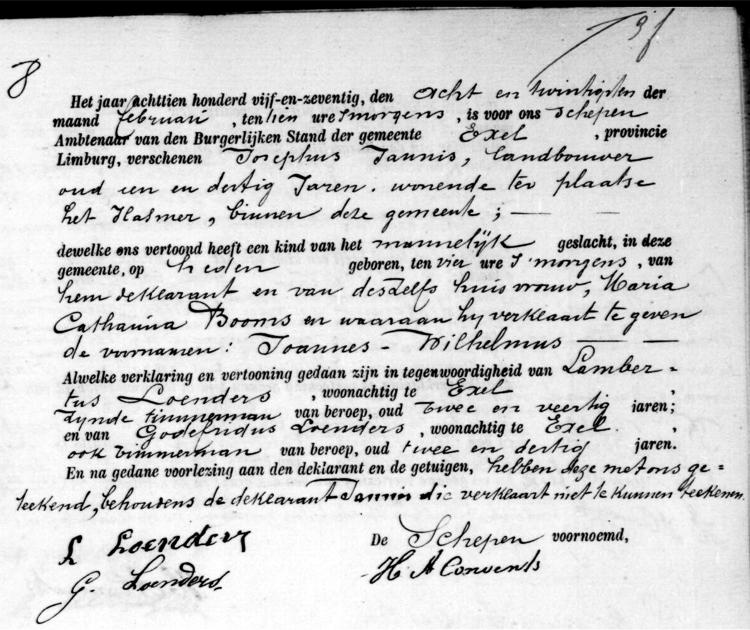 8
Het jaar achttien honderd vijf-en-zeventig, den acht en twintigsten der
maand februari , ten tien ure s'morgens , is voor ons Schepen
Ambtenaar van den Burgerlijken Stand der gemeente Exel , provincie
Limburg, verschenen Josephus Jannis, landbouwer
oud een en dertig Jaren. wonende ter plaatse
het Hasmer, binnen deze gemeente ; — —
dewelke ons vertoond heeft een kind van het mannelijk geslacht, in deze
gemeente, op heden geboren, ten vier ure s'morgens , van
hem deklarant en van deszelfs huisvrouw, Maria
Catharina Booms en waaraan hy verklaart te geven
de vornamen : Joannes - Wilhelmus — —
Alwelke verklaring en vertooning gedaan zijn in tegenwoordigheid van Lamber-
tus Loenders , woonachtig te Exel ,
zynde timmerman van beroep, oud twee en veertig jaren;
en van Godefridus Loenders , woonachtig te Exel. ,
ook timmerman van beroep, oud twee en dertig jaren.
En na gedane voorlezing aan den deklarant en de getuigen, hebben deze met ons ge-
teekend, behoudens de deklarant Jannis die verklaart niet te kunnen teekenen.
L Loenders
De Schepen voornoemd,
G. Loenders
H A Convents